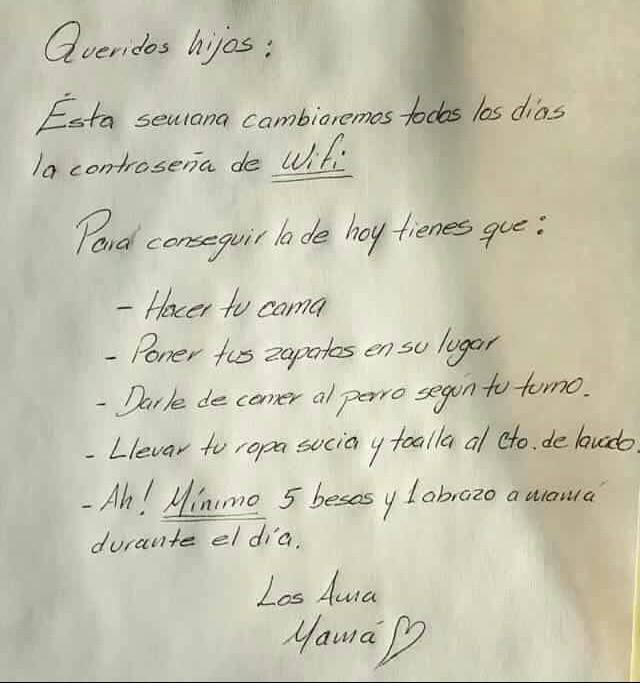 Queridos hijos:
Ésta semana cambiaremos todos los días
la contraseña de Wifi
Para conseguir la de hoy tienes que:
- Hacer tu cama
- Poner tus zapatos en su lugar
- Darle de comer al perro según tu turno.
- Llevar tu ropa sucia y toalla al cto. de lavado.
- Ah! Mínimo 5 besos y 1 abrazo a mamá
durante el día.
Los Ama
Mamá